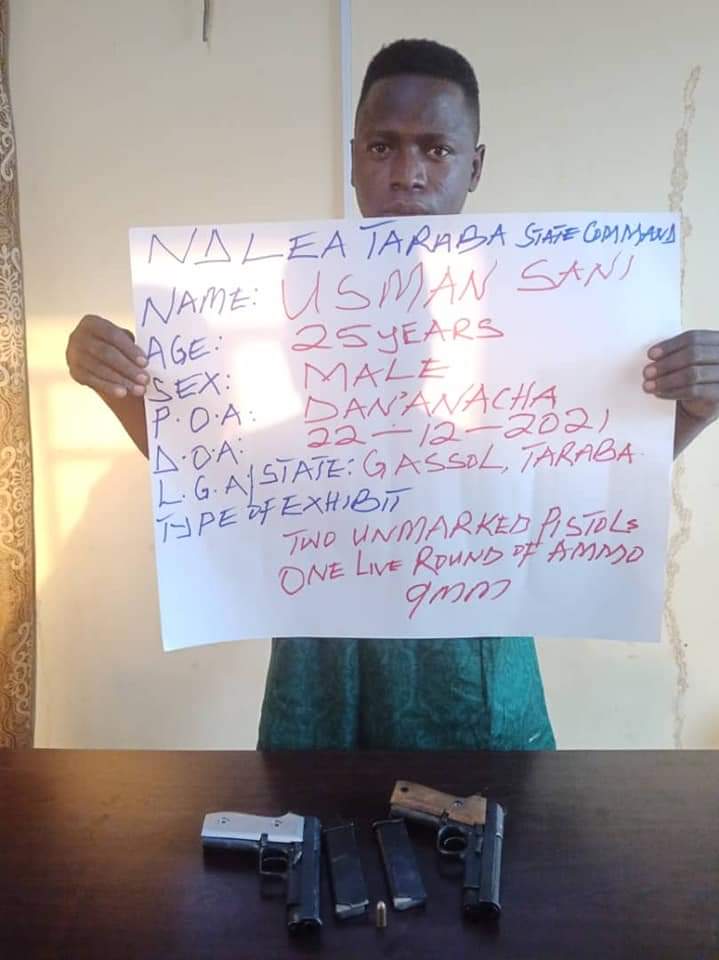 NDLEA TARABA STATE COMMAND
NAME: USMAN SANI
AGE: 25 YEARS
SEX: MALE
P.O.A: DAN'ANACHA
D.O.A: 22-12-2021
L.G.A/STATE: GASSOL, TARABA
TYPE OF EXHIBIT
TWO UNMARKED PISTOLS
ONE LIVE ROUND OF AMMO
9mm